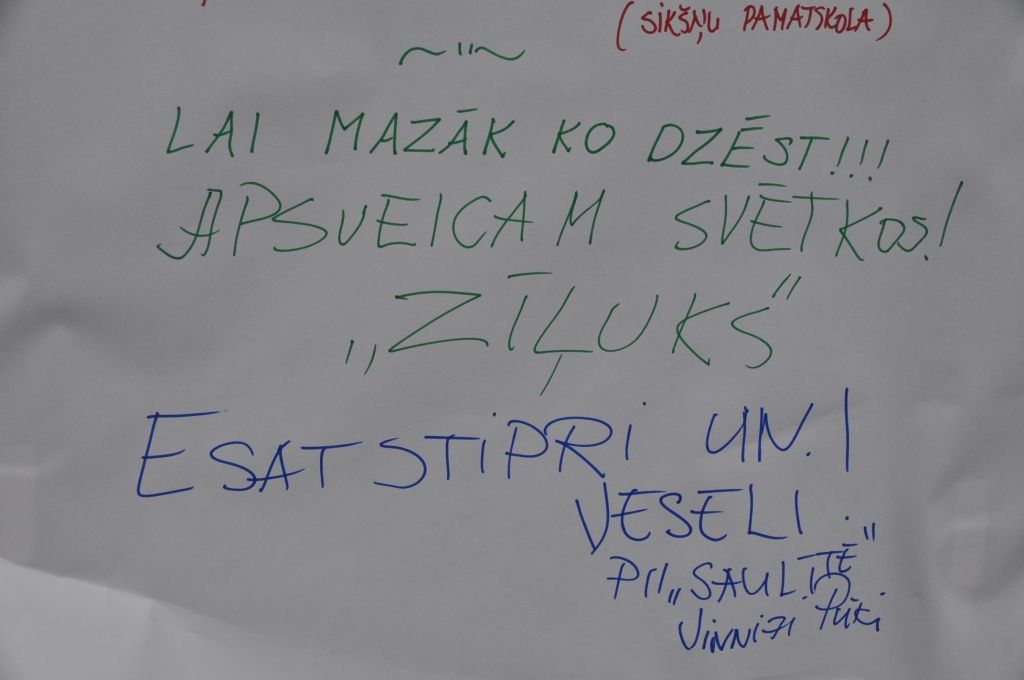 (SIKŠŅU PAMATSKOLA)
~"~
LAI MAZĀK KO DZĒST!!!
APSVEICAM SVĒTKOS!
„ZĪĻUKS"
ESAT STIPRI UN!
VESELI.
PII „SAULĪTĒ"
VINNIJI Pūki